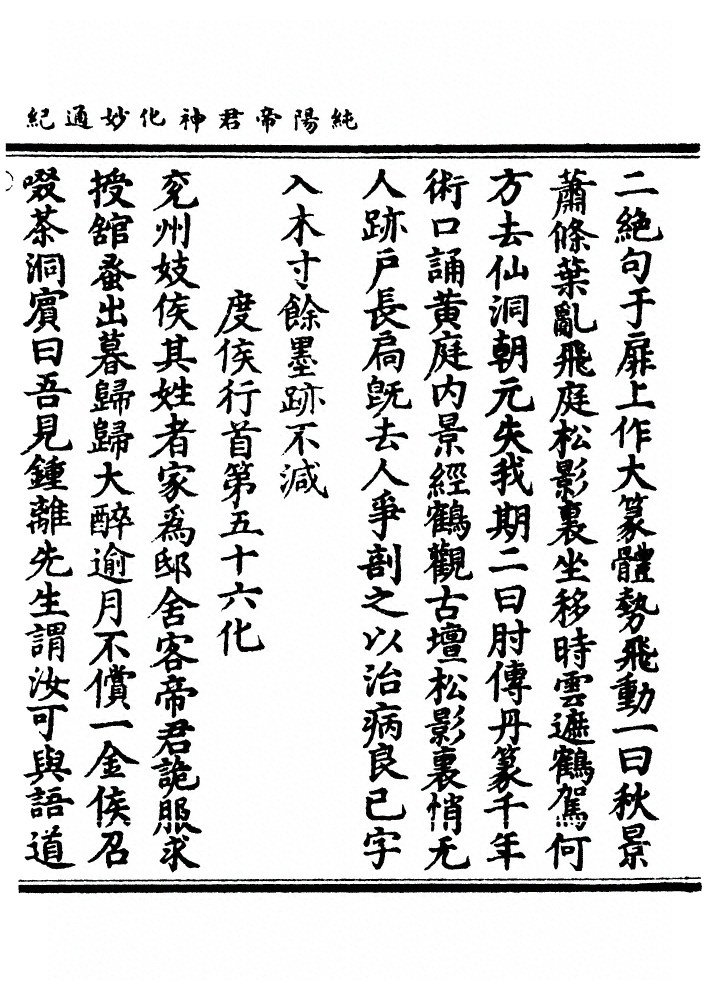 純陽帝君神化妙通紀
二絶句于扉上作大篆體勢飛動一曰秋景
蕭條葉亂飛庭松影裏坐移時雲遮鶴駕何
方去仙洞朝元失我期二曰肘傳丹篆千年
術口誦黄庭内景經鶴觀古壇松影裏悄无
人跡戶長扃既去人爭剖之以治病良已字
入木寸餘墨跡不減
度侯行首第五十六化
兖州妓侯其姓者家爲邸舍客帝君詭服求
授舘蚤出暮歸歸大醉逾月不償一金侯召
啜茶洞賓曰吾見鍾離先生謂汝可與語道